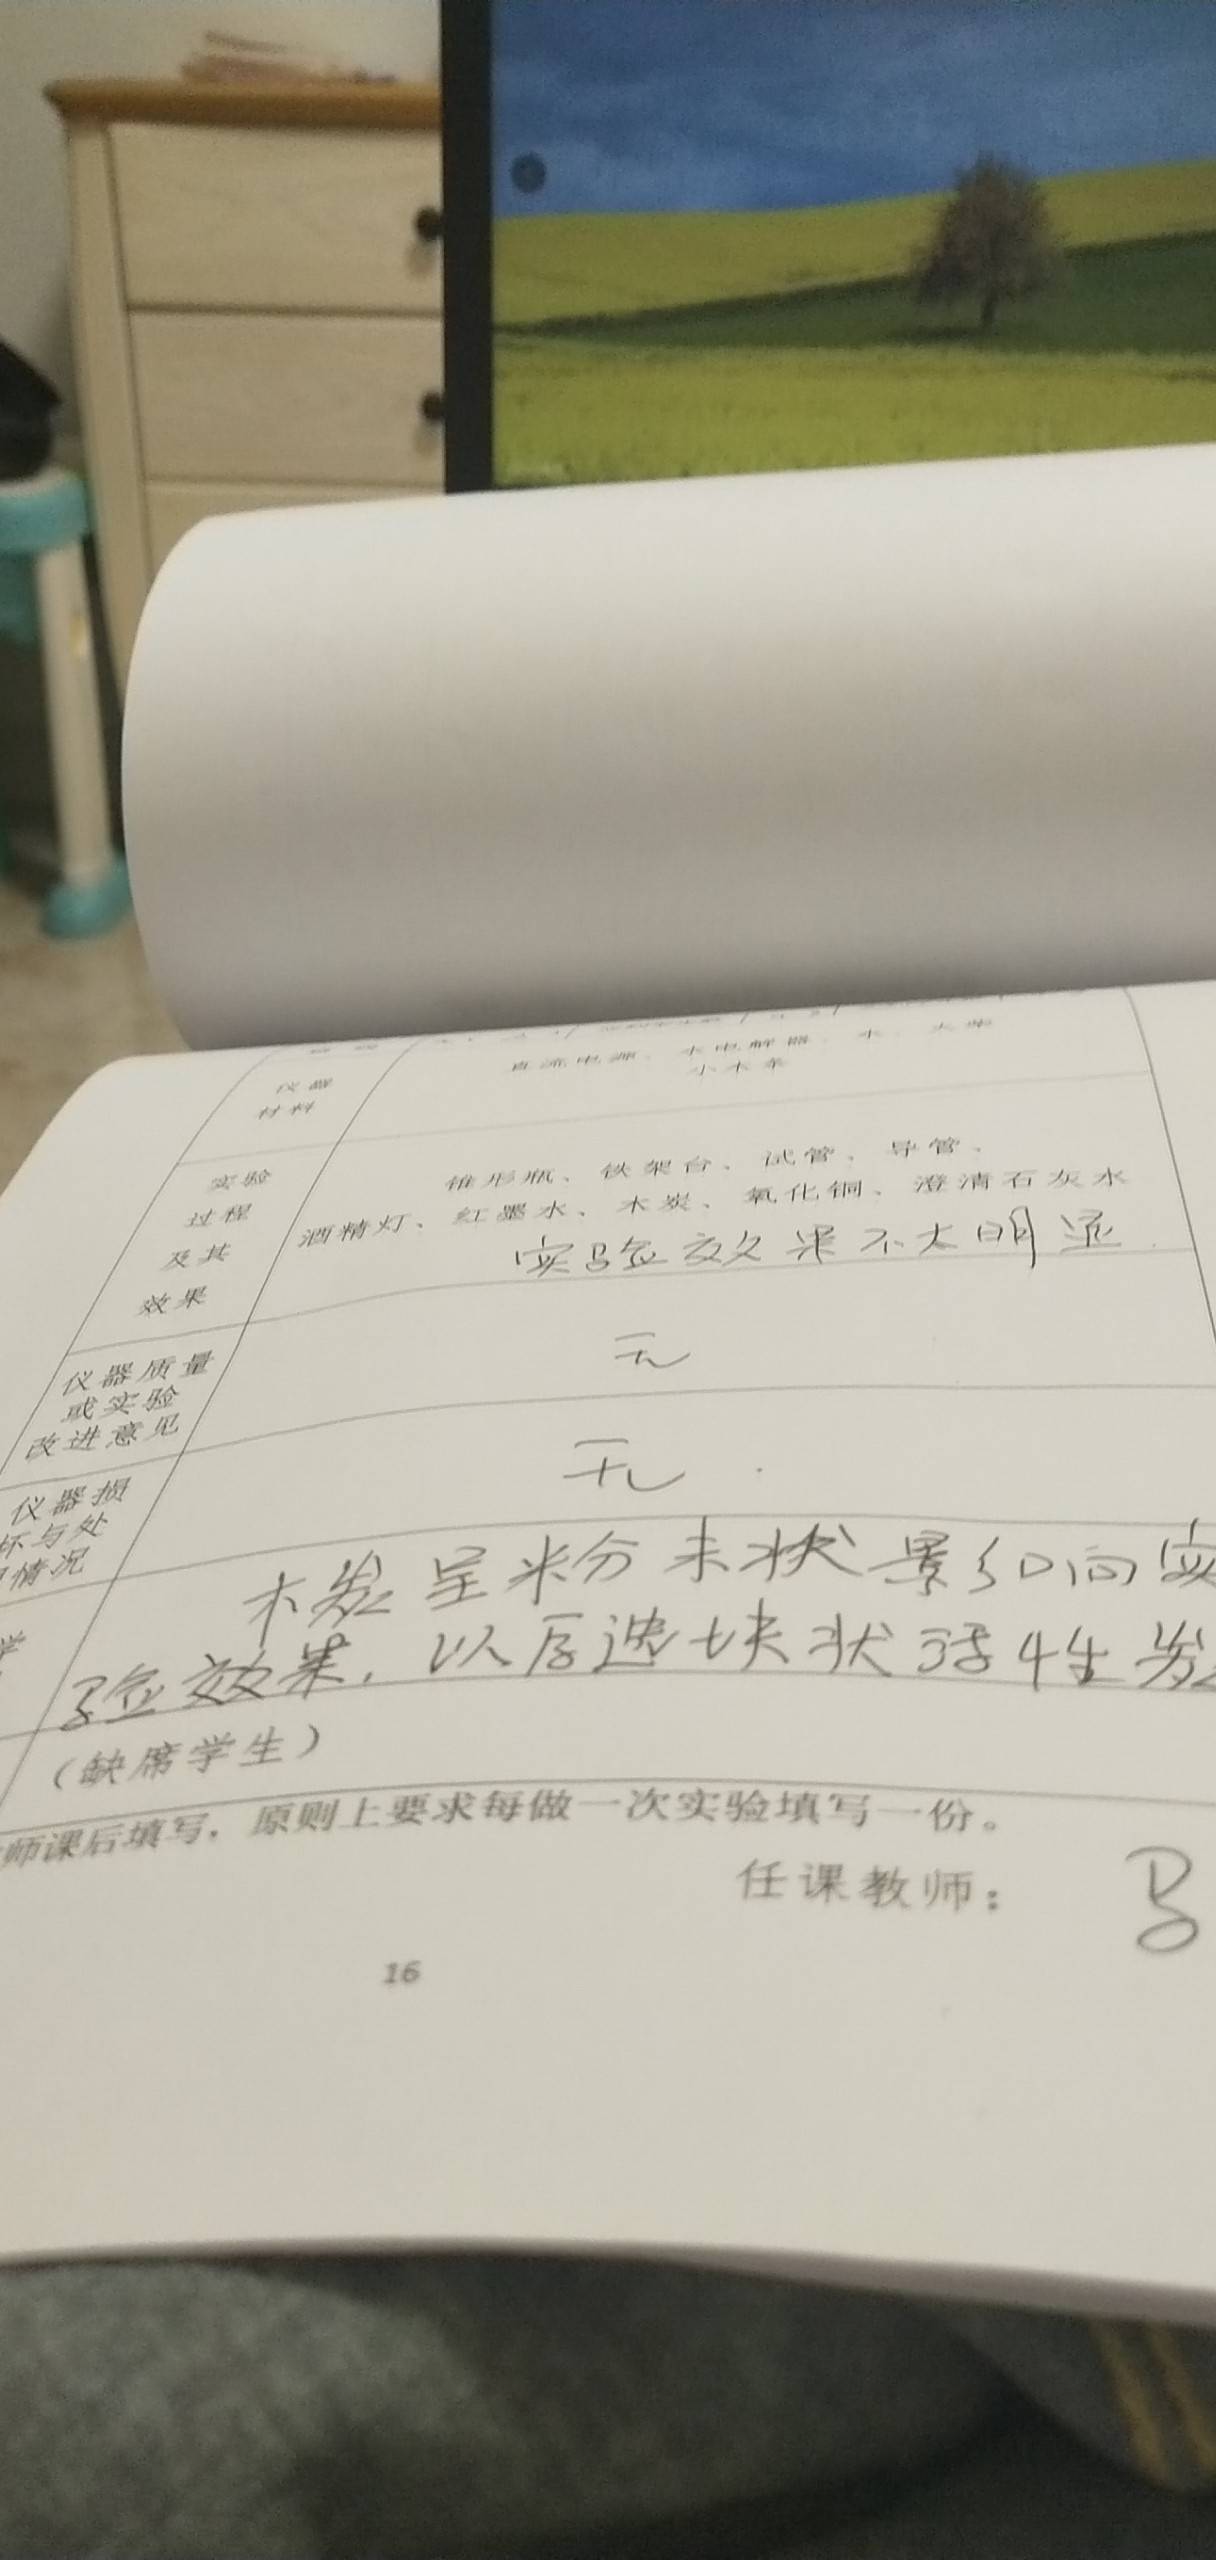 仪器
材料
直流电源、水电解器、水、火柴
小木条
实验
过程
及其
效果
锥形瓶、铁架台、试管、导管、
酒精灯、红墨水、木炭、氧化铜、澄清石灰水
实验效果不太明显.
仪器质量
或实验
改进意见
无
仪器损
坏与处
情况
无.
木炭呈粉末状影响实
验效果,以后选块状活性炭
(缺席学生)
师课后填写，原则上要求每做一次实验填写一份。
任课教师：
16